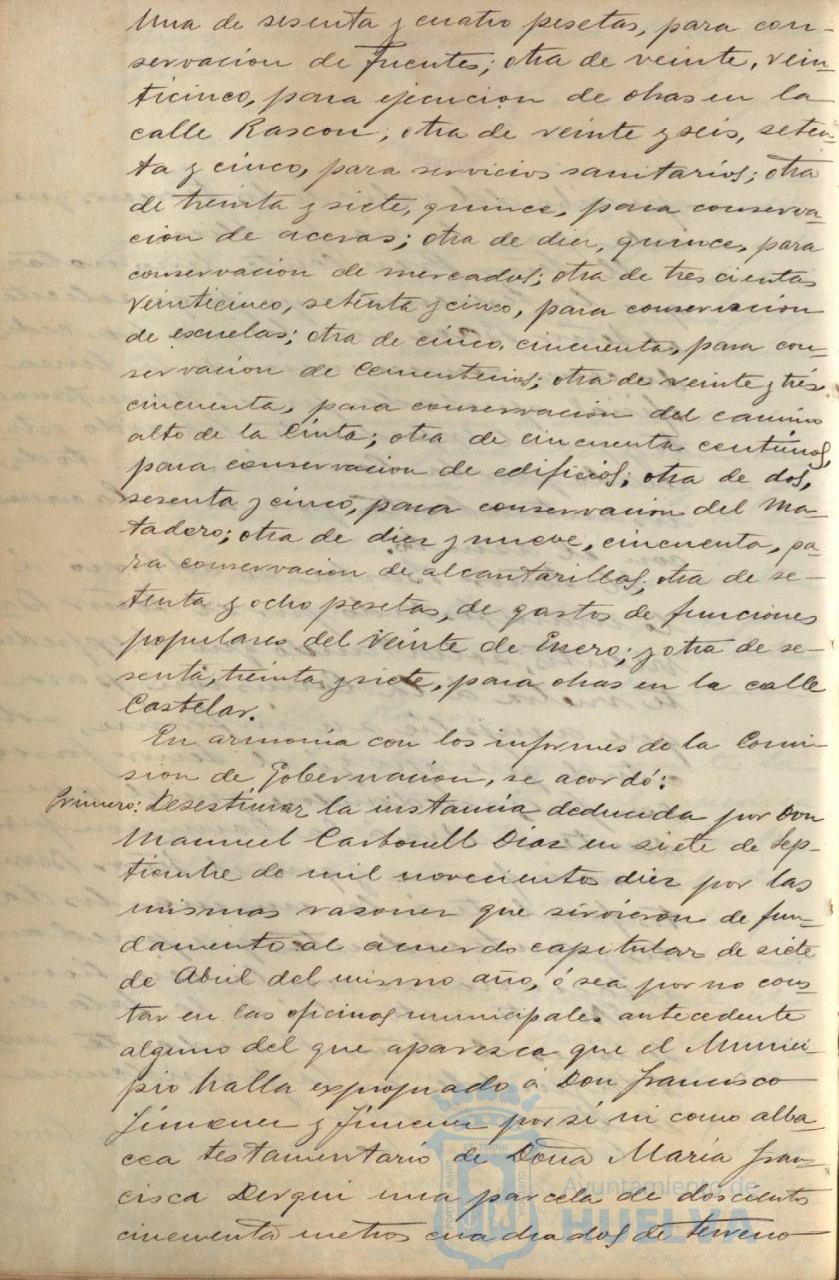 Una de sesenta y cuatro pesetas, para con-
servacion de Fuentes; otra de veinte, vein-
ticinco, para ejecucion de obras en la
calle Rascon; otra de veinte y seis, seten-
ta y cinco, para servicios sanitarios; otra
de treinta y siete, quince, para conserva-
cion de aceras; otra de diez, quince, para
conservacion de mercados; otra de trescientas
veinticinco, setenta y cinco, para conservacion
de escuelas; otra de cinco, cincuenta, para con-
servacion de Cementerios; otra de veinte y tres
cincuenta, para conservacion del camino
alto de la Cinta; otra de cincuenta centimos,
para conservacion de edificios; otra de dos,
sesenta y cinco, para conservacion del Ma-
tadero; otra de diez y nueve, cincuenta, pa-
ra conservacion de alcantarillas; otra de se-
tenta y ocho pesetas, de gastos de funciones
populares del Veinte de Enero; y otra de se-
senta, treinta y siete, para obras en la calle
Castelar.
En armonía con los informes de la Comi
sion de Gobernacion, se acordó:
Primero: Desestimar la instancia deducida por Don
Manuel Carbonell Diaz en siete de Sep-
tiembre de mil novecientos diez por las
mismas razones que sirvieron de fun-
damento al acuerdo capitular de siete
de Abril del mismo año, ó sea por no cons-
tar en las oficinas municipales antecedente
alguno del que aparezca que el Munici-
pio halla expropiado á Don Francisco
Jimenez y Jimenez por sí ni como alba-
cea testamentario de Doña María Fran-
cisca Derqui una parcela de doscientos
cincuenta metros cuadrados de terreno
Ayuntamiento de
HUELVA